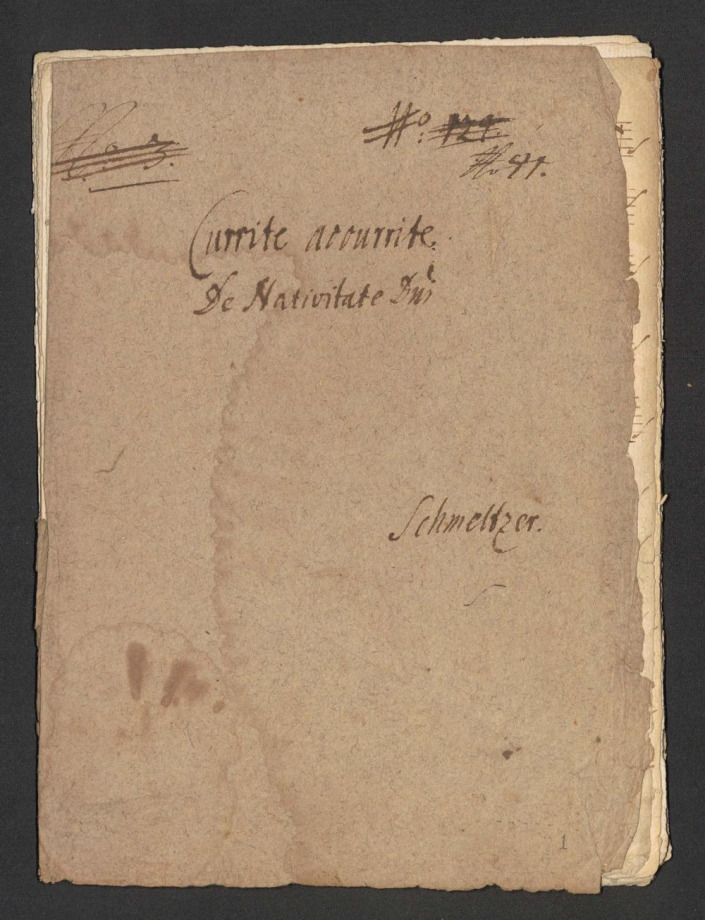 No. 3.
No. 129.
No 91.
Currite accurrite.
De Nativitate Dni
Schmeltzer.
1